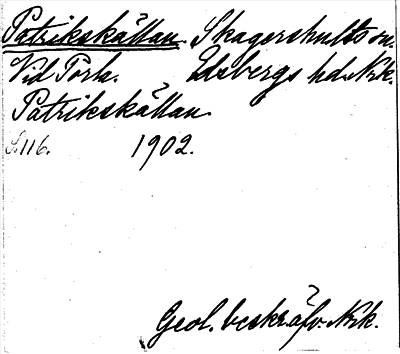 Patrikskällan. Skagershults sn.
Vid Porla. Edsbergs hd. Nrk.
Patrikskällan.
S. 116. 1902.
Geol. beskr. öfv. Nrk.